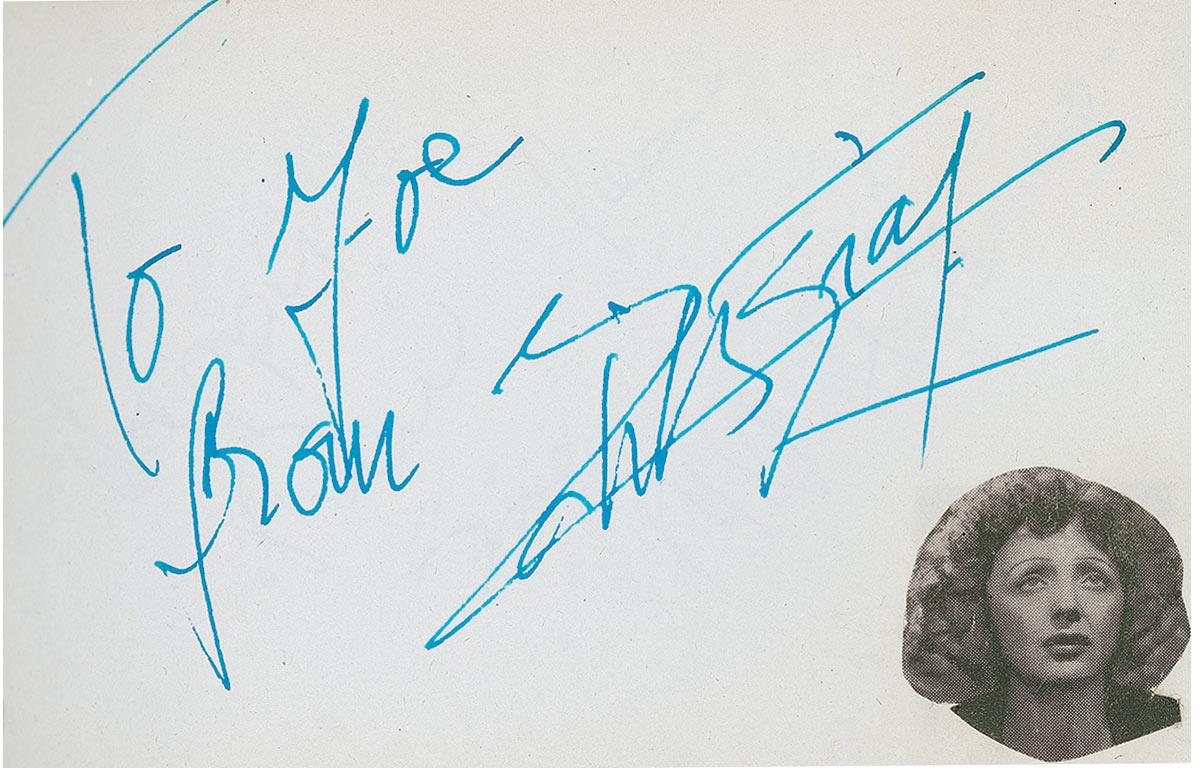 To Joe
from Edith Piaf